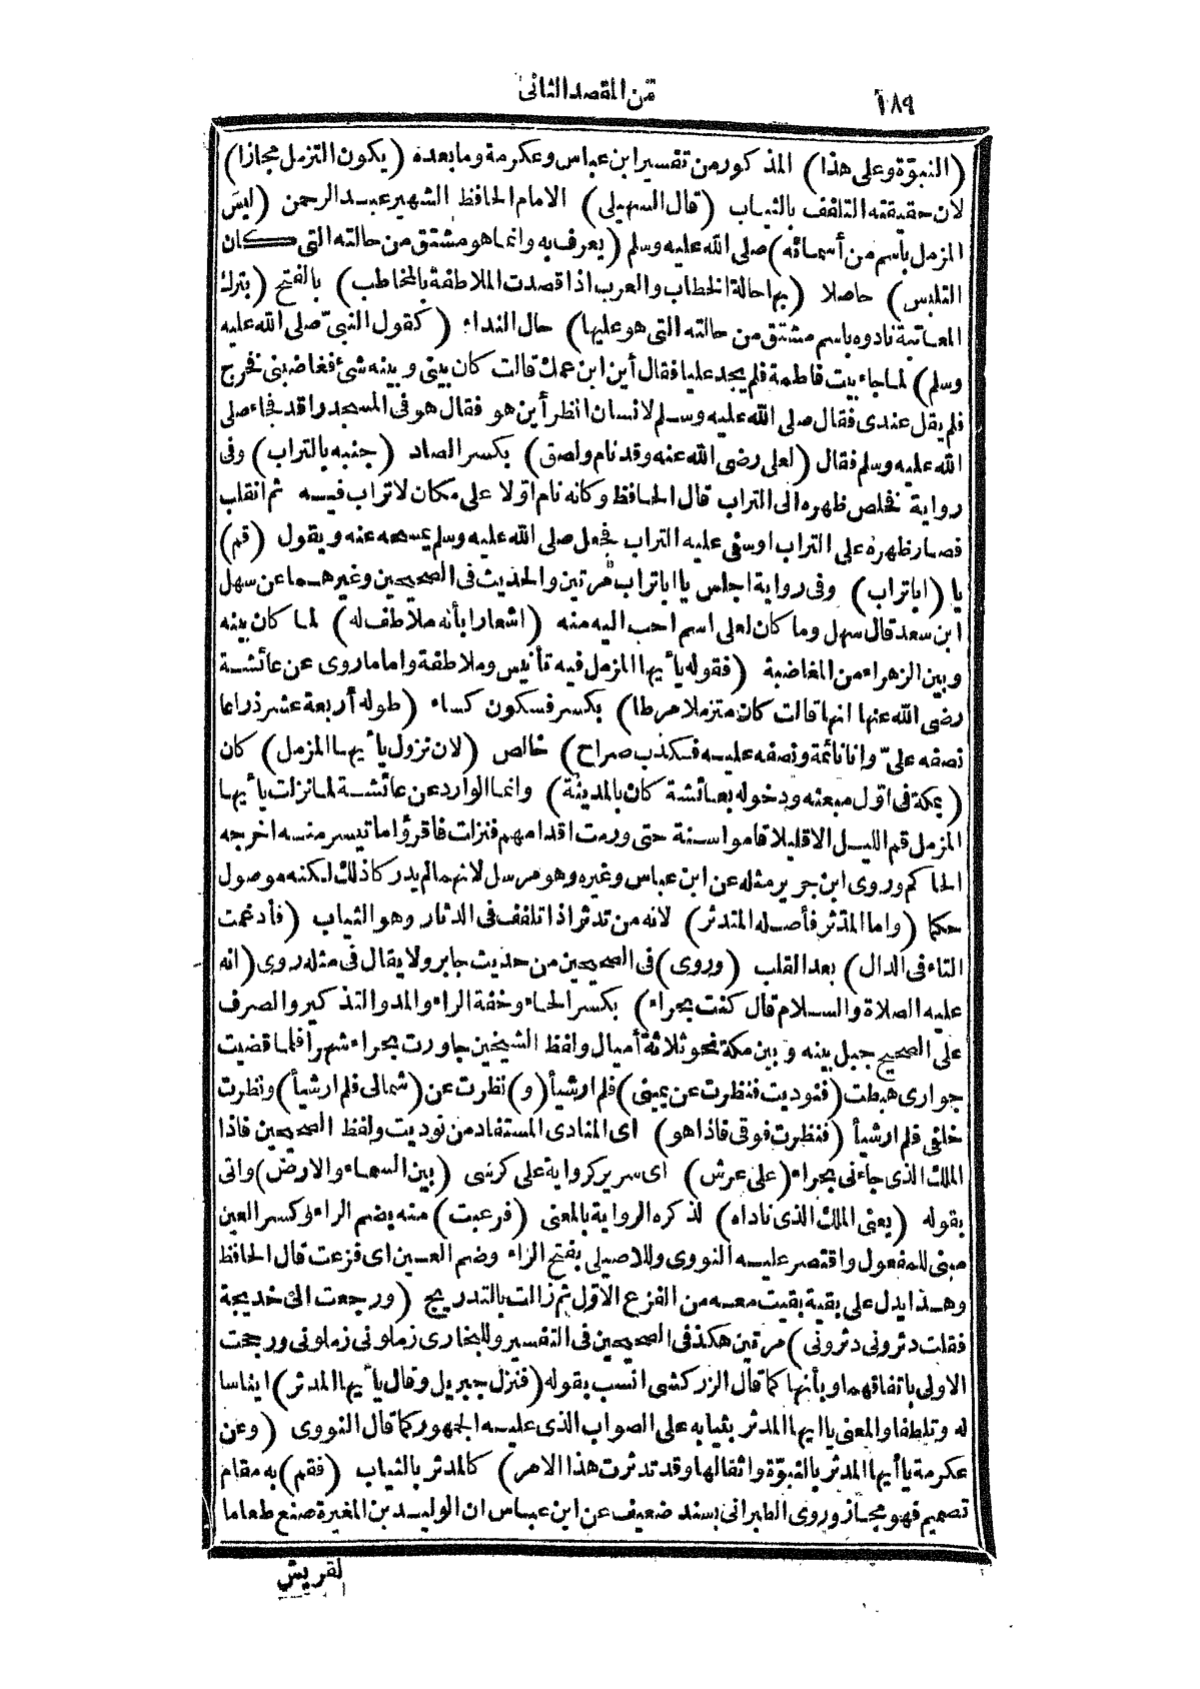 ١٨٩
من المقصد الثانى
(النبوّة وعلى هذا) المذكور من تفسير ابن عباس وعكرمة وما بعده (يكون التزمل مجازا)
لان حقيقته التلفف بالثياب (قال السهيلى) الامام الحافظ الشهير عبد الرحمن (ليس
المزمل باسم من أسمائه) صلى الله عليه وسلم (يعرف به وانما هو مشتق من حالته التى كان
التلبس) حاصلا (بها حالة الخطاب والعرب اذا قصدت الملاطفة بالمخاطب) بالفتح (بترك
المعاتبة نادوه باسم مشتق من حالته التى هو عليها) حال النداء (كقول النبىّ صلى الله عليه
وسلم) لما جاء بيت فاطمة فلم يجد عليا فقال أين ابن عمك قالت كان بينى وبينه شئ فغاضبنى فخرج
فلم يقل عندى فقال صلى الله عليه وسلم لانسان انظر أين هو فقال هو فى المسجد راقد فجاء صلى
الله عليه وسلم فقال (لعلى رضى الله عنه وقد نام ولصق) بكسر الصاد (جنبه بالتراب) وفى
رواية فخلص ظهره الى التراب قال الحافظ وكانه نام اوّلا على مكان لا تراب فيه ثم انقلب
فصار ظهره على التراب او سفى عليه التراب فجعل صلى الله عليه وسلم يمسحه عنه ويقول (قم)
يا (ابا تراب) وفى رواية اجلس يا ابا تراب مرتين والحديث فى الصحيحين وغيرهما عن سهل
ابن سعد قال سهل وما كان لعلى اسم احب اليه منه (اشعارا بأنه ملاطف له) لما كان بينه
وبين الزهراء من المغاضبة (فقوله يا أيها المزمل فيه تأنيس وملاطفة واما ما روى عن عائشة
رضى الله عنها انها قالت كان متزملا مرطا) بكسر فسكون كساء (طوله أربعة عشر ذراعا
نصفه علىّ وانا نائمة ونصفه عليه فكذب صراح) خالص (لان نزول يا أيها المزمل) كان
(بمكة فى اوّل مبعثه ودخوله بعائشة كان بالمدينة) وانما الوارد عن عائشة لما نزلت يا أيها
المزمل قم الليل الا قليلا قاموا سنة حتى ورمت اقدامهم فنزلت فاقرؤا ما تيسر منه اخرجه
الحاكم وروى ابن جرير مثله عن ابن عباس وغيره وهو مرسل لانهما لم يدركا ذلك لكنه موصول
حكما (واما المدّثر فأصله المتدثر) لانه من تدثر اذا تلفف فى الدثار وهو الثياب (فأدغمت
التاء فى الدال) بعد القلب (وروى) فى الصحيحين من حديث جابر ولا يقال فى مثله روى (انه
عليه الصلاة والسلام قال كنت بحراء) بكسر الحاء وخفة الراء والمد والتذكير والصرف
على الصحيح جبل بينه وبين مكة نحو ثلاثة أميال ولفظ الشيخين جاورت بحراء شهرا فلما قضيت
جوارى هبطت (فنوديت فنظرت عن يمينى) فلم ار شيأ (و) نظرت عن (شمالى فلم ار شيأ) ونظرت
خلفى فلم ار شيأ (فنظرت فوقى فاذا هو) اى المنادى المستفاد من نوديت ولفظ الصحيحين فاذا
الملك الذى جاءنى بحراء (على عرش) اى سرير كرواية على كرسى (بين السماء والارض) واتى
بقوله (يعنى الملك الذى ناداه) لذكره الرواية بالمعنى (فرعبت) منه بضم الراء وكسر العين
مبنى للمفعول واقتصر عليه النووى وللاصيلى بفتح الراء وضم العين اى فزعت قال الحافظ
وهذا يدل على بقية بقيت معه من الفزع الاوّل ثم زالت بالتدريج (ورجعت الى خديجة
فقلت دثرونى دثرونى) مرتين هكذا فى الصحيحين فى التفسير وللبخارى زملونى زملونى ورجحت
الاولى باتفاقهما وبأنها كما قال الزركشى انسب بقوله (فنزل جبريل وقال يا أيها المدثر) ايناسا
له وتلطفا والمعنى يا ايها المدثر بثيابه على الصواب الذى عليه الجمهور كما قال النووى (وعن
عكرمة يا أيها المدثر بالنبوّة واثقالها وقد تدثرت هذا الامر) كالمدثر بالثياب (فقم) به مقام
تصميم فهو مجاز وروى الطبرانى بسند ضعيف عن ابن عباس ان الوليد بن المغيرة صنع طعاما
لقريش